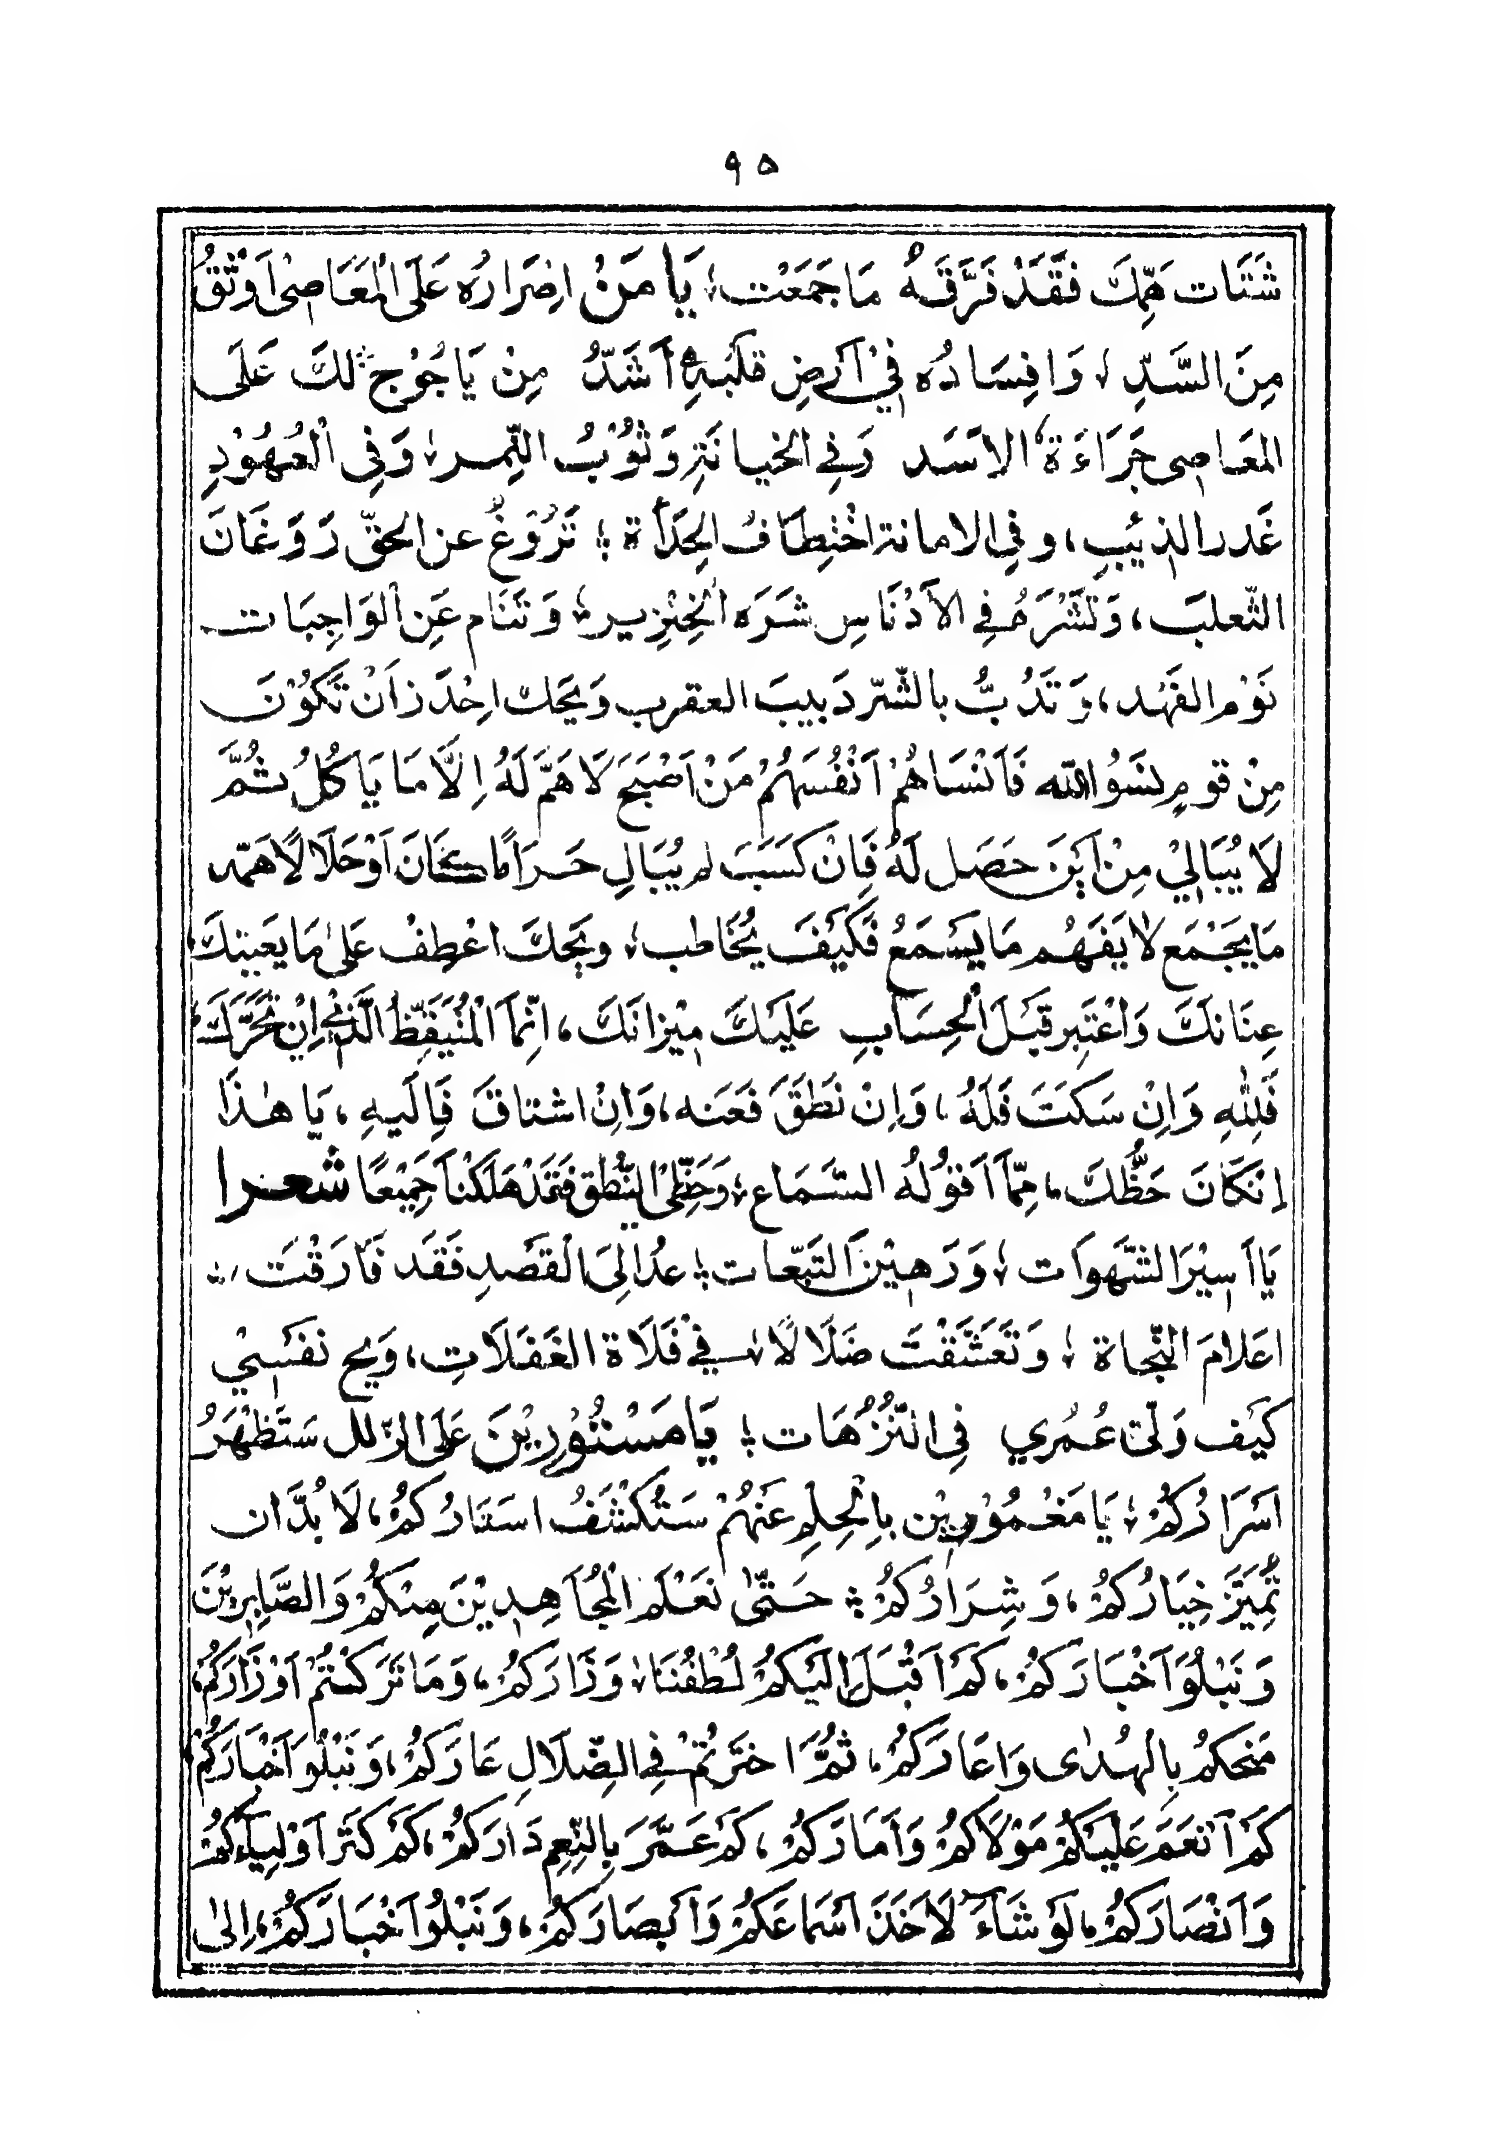 ٩٥
شَتَات هَمِّكَ فَقَدْ فَرَّقَهُ مَا جَمَعْت؛ يَا مَنْ اِضرَارُه عَلَى الْمَعَاصِى اَوْثَقُ
مِنَ السَّدِّ، وَافِسَادُه فِيْ اَرضِ قلبهِ اَشَدُّ مِنْ يَاجُوْج لكَ عَلَى
المَعَاصِى جَرَاءَةُ الاَسَد وَفِي الخيانَةِ وَثُوْبُ النِّمر، وَفِى الْعُهُوْدِ
غَدر الذئبِ، وفِي الامانة اخْتِطَافُ الحِدَأة؛ تَرُوْغُ عن الحقِّ رَوَغَانَ
الثّعلبَ، وَتَشْرَهُ فِي الاَدْنَاسِ شَرَه الْخِنْزِير، وَتَنَام عَنِ الوَاجِبَات
نَوْم الفَهْد، وَتَدُبُّ بالشّر دَبيبَ العقرب وَيحَك اِحْذَر اَنْ تَكُوْنَ
مِنْ قومٍ نَسَوُا اللّٰه فَاَنْسَاهُمْ اَنْفُسَهُمْ مَنْ اَصْبَحَ لَا هَمَّ لَهُ اِلَّا مَا يَاكُلُ ثُمَّ
لَا يُبَالِيْ مِنْ اَيْنَ حَصَل لَهُ فَاِنْ كَسَبَ لم يُبَالِ حَرَامًا كَانَ اَوْ حَلَالًا هَمّه
مَا يَجْمَع لَا يَفَهُم مَا يَسْمَعُ فَكَيْفَ يُخَاطب؛ ويحَكَ اعْطِفْ عَلىٰ مَا يَعْنِيْكَ
عِنَانَكَ وَاعْتَبِر قَبَلَ الْحِسَابِ عَلَيْكَ مِيْزَانَكَ، اِنَّمَا الْمُتَيَقِّظُ الَّذِيْ اِنْ تَحَرَّكَ
فَلِلّٰهِ وَاِنْ سَكَتَ فَلَهُ، وَاِنْ نَطَقَ فَعَنه، وَاِنْ اشتاقَ فَاِلَيهِ، يَا هٰذَا
اِنْكَانَ حَظُّكَ، مِمّا اَقوْلُهُ السَّمَاع، وَحَظِّى النُّطْق فَقَدْ هَلَكْنَا جَمِيْعًا شعرا
يَا اَسِيْرَ الشَّهَوَات، وَرَهِيْنَ التَبّعات؛ عُد اِلَى الْقَصْدِ فَقَد فَارَقْتَ
اعَلَامَ النّجاة، وَتَعَشَّقْتَ ضَلَالًا، فِيْ فَلَاة الغَفَلَاتِ، وَيح نفسِيْ
كَيْف وَلّى عُمُرِي فِى التُّزُهَات؛ يَا مَسْتُوْرِيْنَ عَلَى الزّلل سَتَظْهَرُ
اَسَرَارُكُمْ، يَا مَغْمُوْرِيْن بِالْحِلِمِ عَنْهُمْ سَتُكْشَفُ اسَتَارُكُمْ، لَا بُدَّ ان
تُمَيَّزَ خِيَارُكُمْ، وَشِرَارُكُمْ؛ حَتّٰى نَعْلَمَ الْمُجَاهِدِيْنَ مِنْكُمْ وَالصَّابِرِيْنَ
وَنَبْلُوَا اَخْبَارَكُمْ، كَمْ اَقْبَلَ اِلَيْكُمْ لُطْفُنَا، وَزَارَكُمْ، وَمَا تَرَكْتُمْ اَوْزَارَكُمْ،
مَنحكُمْ بِالْهُدٰى وَاعَارَكُمْ، ثُمَّ اخْتَرْتُمْ فِى الضّلَالِ عَارَكُمْ، وَنَبْلُوَا اَخْبَارَكُمْ
كَمْ اَنعَمَ عَلَيْكُمْ مَوْلَاكُمْ وَاَمَارَكُمْ، كَمْ عَمَّرَ بِالنِّعمِ دَارَكُمْ، كَمْ كَثَّرَ اَوْلِيَآءَكُمْ
وَاَنْصَارَكُمْ، لَوْ شَآءَ لَاَخَذَ اَسْمَاعَكُمْ وَاَبصَارَكُمْ، وَنَبْلُوَا اَخْبَارَكُمْ، اِلىٰ